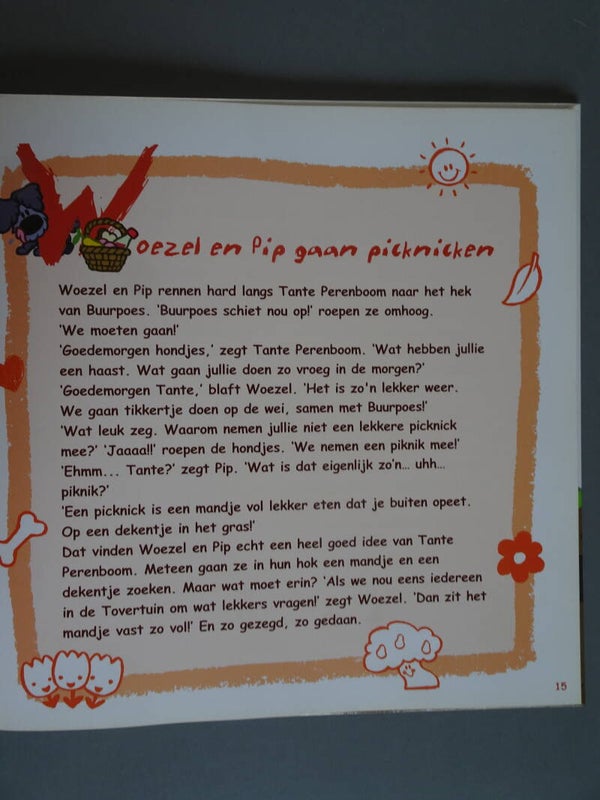 Woezel en Pip gaan picknicken
Woezel en Pip rennen hard langs Tante Perenboom naar het hek
van Buurpoes. 'Buurpoes schiet nou op!' roepen ze omhoog.
'We moeten gaan!'
'Goedemorgen hondjes,' zegt Tante Perenboom. 'Wat hebben jullie
een haast. Wat gaan jullie doen zo vroeg in de morgen?'
'Goedemorgen Tante,' blaft Woezel. 'Het is zo'n lekker weer.
We gaan tikkertje doen op de wei, samen met Buurpoes!'
'Wat leuk zeg. Waarom nemen jullie niet een lekkere picknick
mee?' 'Jaaaa!!' roepen de hondjes. 'We nemen een piknik mee!'
'Ehmm... Tante?' zegt Pip. 'Wat is dat eigenlijk zo'n... uhh...
piknik?'
'Een picknick is een mandje vol lekker eten dat je buiten opeet.
Op een dekentje in het gras!'
Dat vinden Woezel en Pip echt een heel goed idee van Tante
Perenboom. Meteen gaan ze in hun hok een mandje en een
dekentje zoeken. Maar wat moet erin? 'Als we nou eens iedereen
in de Tovertuin om wat lekkers vragen!' zegt Woezel. 'Dan zit het
mandje vast zo vol!' En zo gezegd, zo gedaan.
15